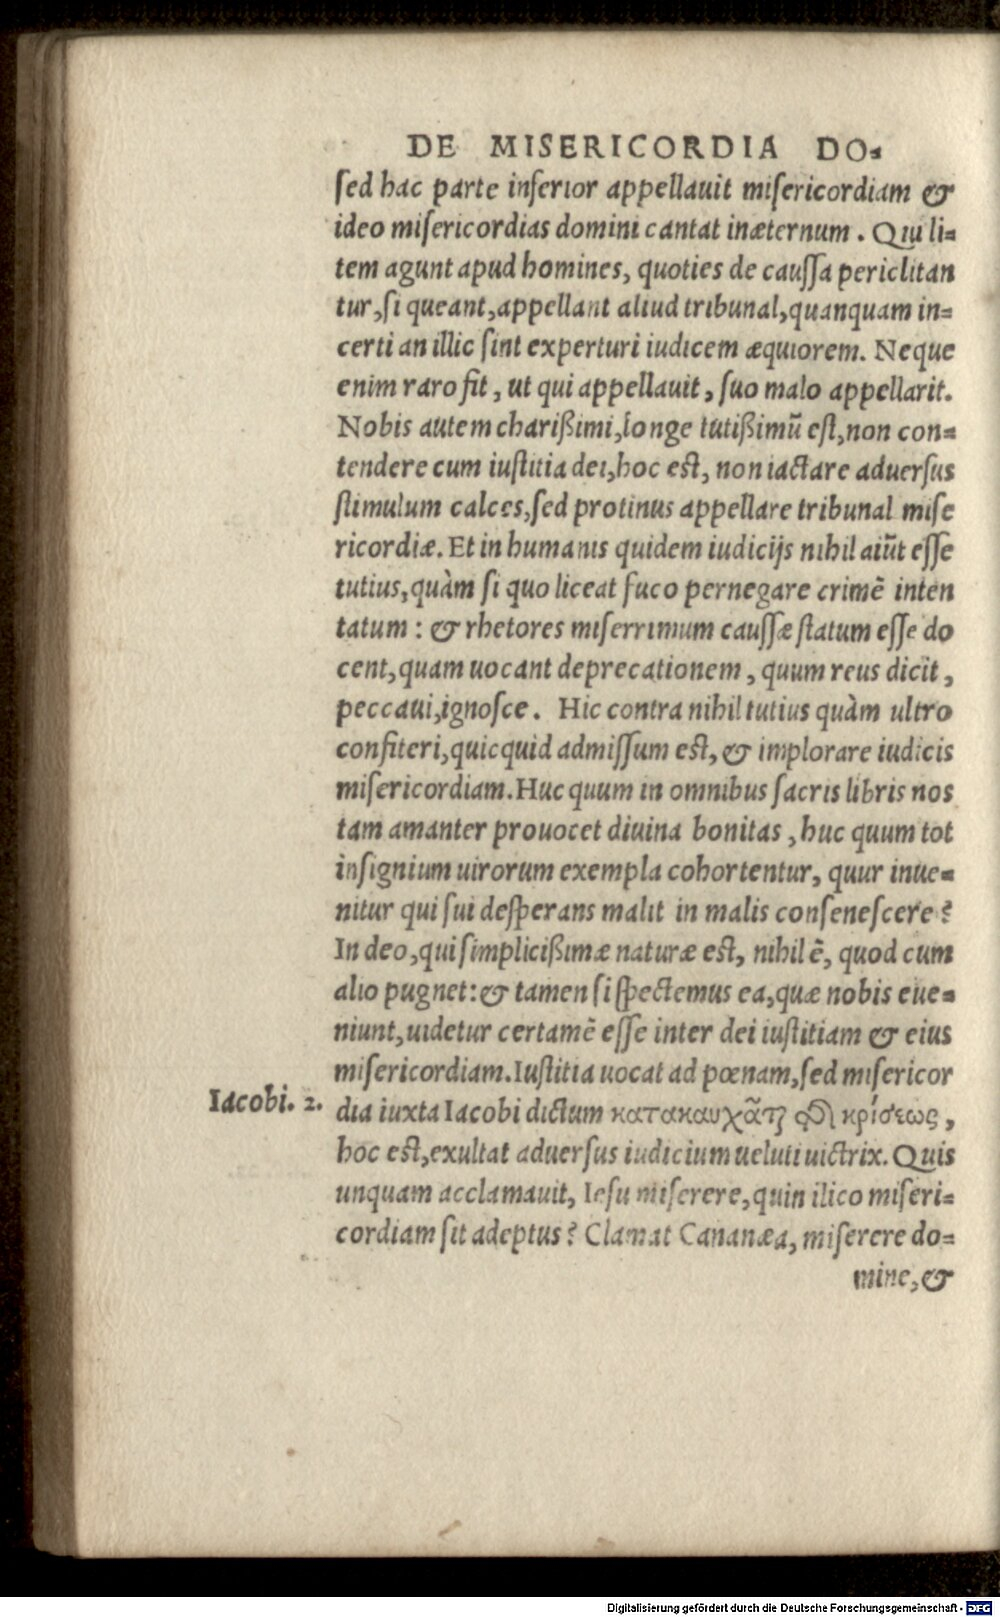 DE MISERICORDIA DO-
sed hac parte inferior appellauit misericordiam &
ideo misericordias domini cantat inæternum. Qui li-
tem agunt apud homines, quoties de caussa periclitan
tur, si queant, appellant aliud tribunal, quanquam in-
certi an illic sint experturi iudicem æquiorem. Neque
enim raro fit, ut qui appellauit, suo malo appellarit.
Nobis autem charißimi, longe tutißimũ est, non con-
tendere cum iustitia dei, hoc est, non iactare aduersus
stimulum calces, sed protinus appellare tribunal mise
ricordiæ. Et in humanis quidem iudicijs nihil aiũt esse
tutius, quàm si quo liceat fuco pernegare crimẽ inten
tatum: & rhetores miserrimum caussæ statum esse do
cent, quam uocant deprecationem, quum reus dicit,
peccaui, ignosce. Hic contra nihil tutius quàm ultro
confiteri, quicquid admissum est, & implorare iudicis
misericordiam. Huc quum in omnibus sacris libris nos
tam amanter prouocet diuina bonitas, huc quum tot
insignium uirorum exempla cohortentur, quur inue-
nitur qui sui desperans malit in malis consenescere?
In deo, qui simplicißimæ naturæ est, nihil ẽ, quod cum
alio pugnet: & tamen si spectemus ea, quæ nobis eue-
niunt, uidetur certamẽ esse inter dei iustitiam & eius
misericordiam. Iustitia uocat ad pœnam, sed misericor
Iacobi. 2.
dia iuxta Iacobi dictum κατακαυχᾶτ̃ κρίσεως,
hoc est, exultat aduersus iudicium ueluti uictrix. Quis
unquam acclamauit, Iesu miserere, quin ilico miseri-
cordiam sit adeptus? Clamat Cananæa, miserere do-
mine, &
Digitalisierung gefördert durch die Deutsche Forschungsgemeinschaft - DFG